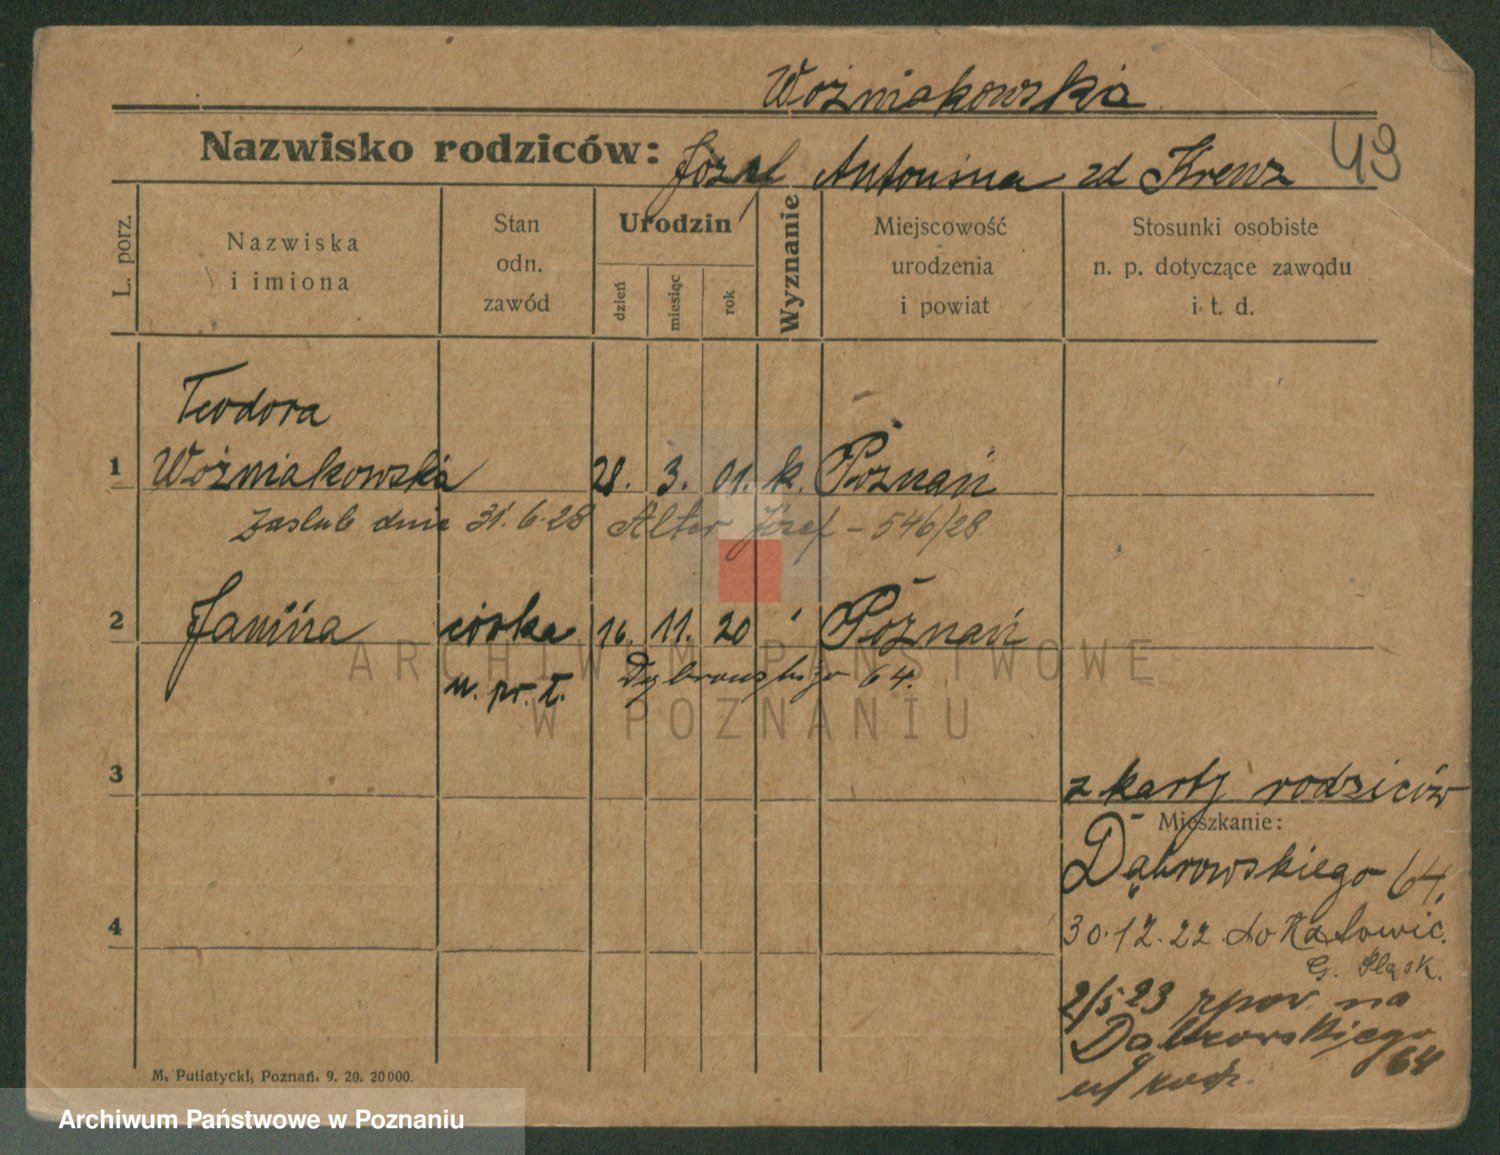 Woźniakowska
49
Nazwisko rodziców: Józef Antonina zd Krenz
L. porz.
Nazwiska
i imiona
Stan
odn.
zawód
Urodzin
dzień
miesiąc
rok
Wyznanie
Miejscowość
urodzenia
i powiat
Stosunki osobiste
n. p. dotyczące zawodu
i t. d.
Teodora
1 Woźniakowska 28. 3. 01. k. Poznań
zaslub dnia 31. 6. 28 Alter Józef - 546/28.
2 Janina córka 16. 11. 20 Poznań
n. pr. ł. Dąbrowskiego 64.
ARCHIWUM PAŃSTWOWE
W POZNANIU
3
z karty rodziców
Mieszkanie:
Dąbrowskiego 64.
4
30.12.22 do Katowic.
G. Śląsk.
2/5 23 zpow. na
Dąbrowskiego
64
M. Putiatycki, Poznań. 9. 20. 20000.
Archiwum Państwowe w Poznaniu